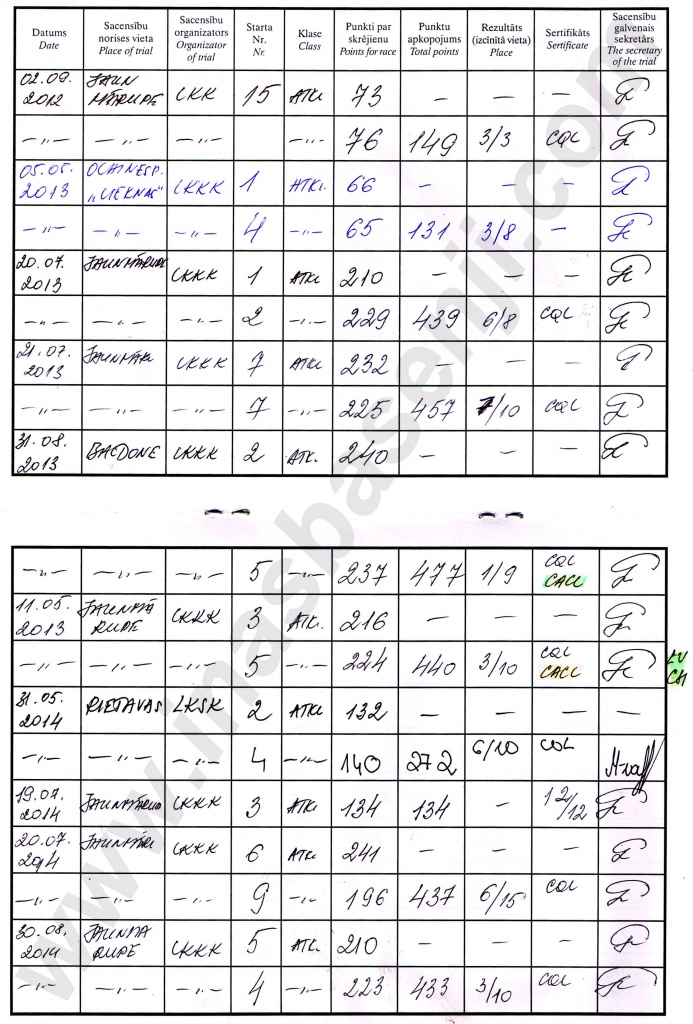 Datums Date | Sacensību norises vieta Place of trial | Sacensību organizators Organizator of trial | Starta Nr. Nr. | Klase Class | Punkti par skrējienu Points for race | Punktu apkopojums Total points | Rezultāts (izcīnītā vieta) Place | Sertifikāts Sertificate | Sacensību galvenais sekretārs The secretary of the trial
02.09. 2012 | JAUN MĀRUPE | LKK | 15 | ATKL | 73 | – | – | –
–"– | –"– | –"– | | –"– | 76 | 149 | 3/3 | CQL
05.05. 2013 | "LIEKNAS" | LKKK | 1 | ATKL | 66 | – | – | –
–"– | –"– | –"– | 4 | –"– | 65 | 131 | 3/8 | –
20.07. 2013 | JAUNMĀRUPE | LKKK | 1 | ATKL | 210 | – | – | –
–"– | –"– | –"– | 2 | –"– | 229 | 439 | 6/8 | CQL
21.07. 2013 | JAUNMĀR | LKKK | 7 | ATKL | 232 | – | – | –
–"– | –"– | –"– | 7 | –"– | 225 | 457 | 7/10 | CQL
31.08. 2013 | BALDONE | LKKK | 2 | ATK. | 240 | – | – | –
–"– | –"– | –"– | 5 | –"– | 237 | 477 | 1/9 | CQL CACL
11.05. 2013 | JAUNMĀ RUPE | LKKK | 3 | ATK. | 216 | – | – | –
–"– | –"– | –"– | 5 | –"– | 224 | 440 | 3/10 | CQL CACL | LV CH
31.05. 2014 | RIETAVAS | LKSK | 2 | ATKL | 132 | – | – | – | –
–"– | –"– | –"– | 4 | –"– | 140 | 272 | 6/10 | CQL
19.07. 2014 | JAUNMĀRUP | LKKK | 3 | ATKL | 134 | 134 | – | 12/12
20.07. 2014 | JAUNMĀR | LKKK | 6 | ATKL | 241 | – | – | –
–"– | –"– | –"– | 9 | –"– | 196 | 437 | 6/15 | CQL
30.08. 2014 | JAUNMA RUPE | LKKK | 5 | ATK. | 210 | – | – | –
–"– | –"– | –"– | 4 | –"– | 223 | 433 | 3/10 | CQL
www.inasbasenji.com